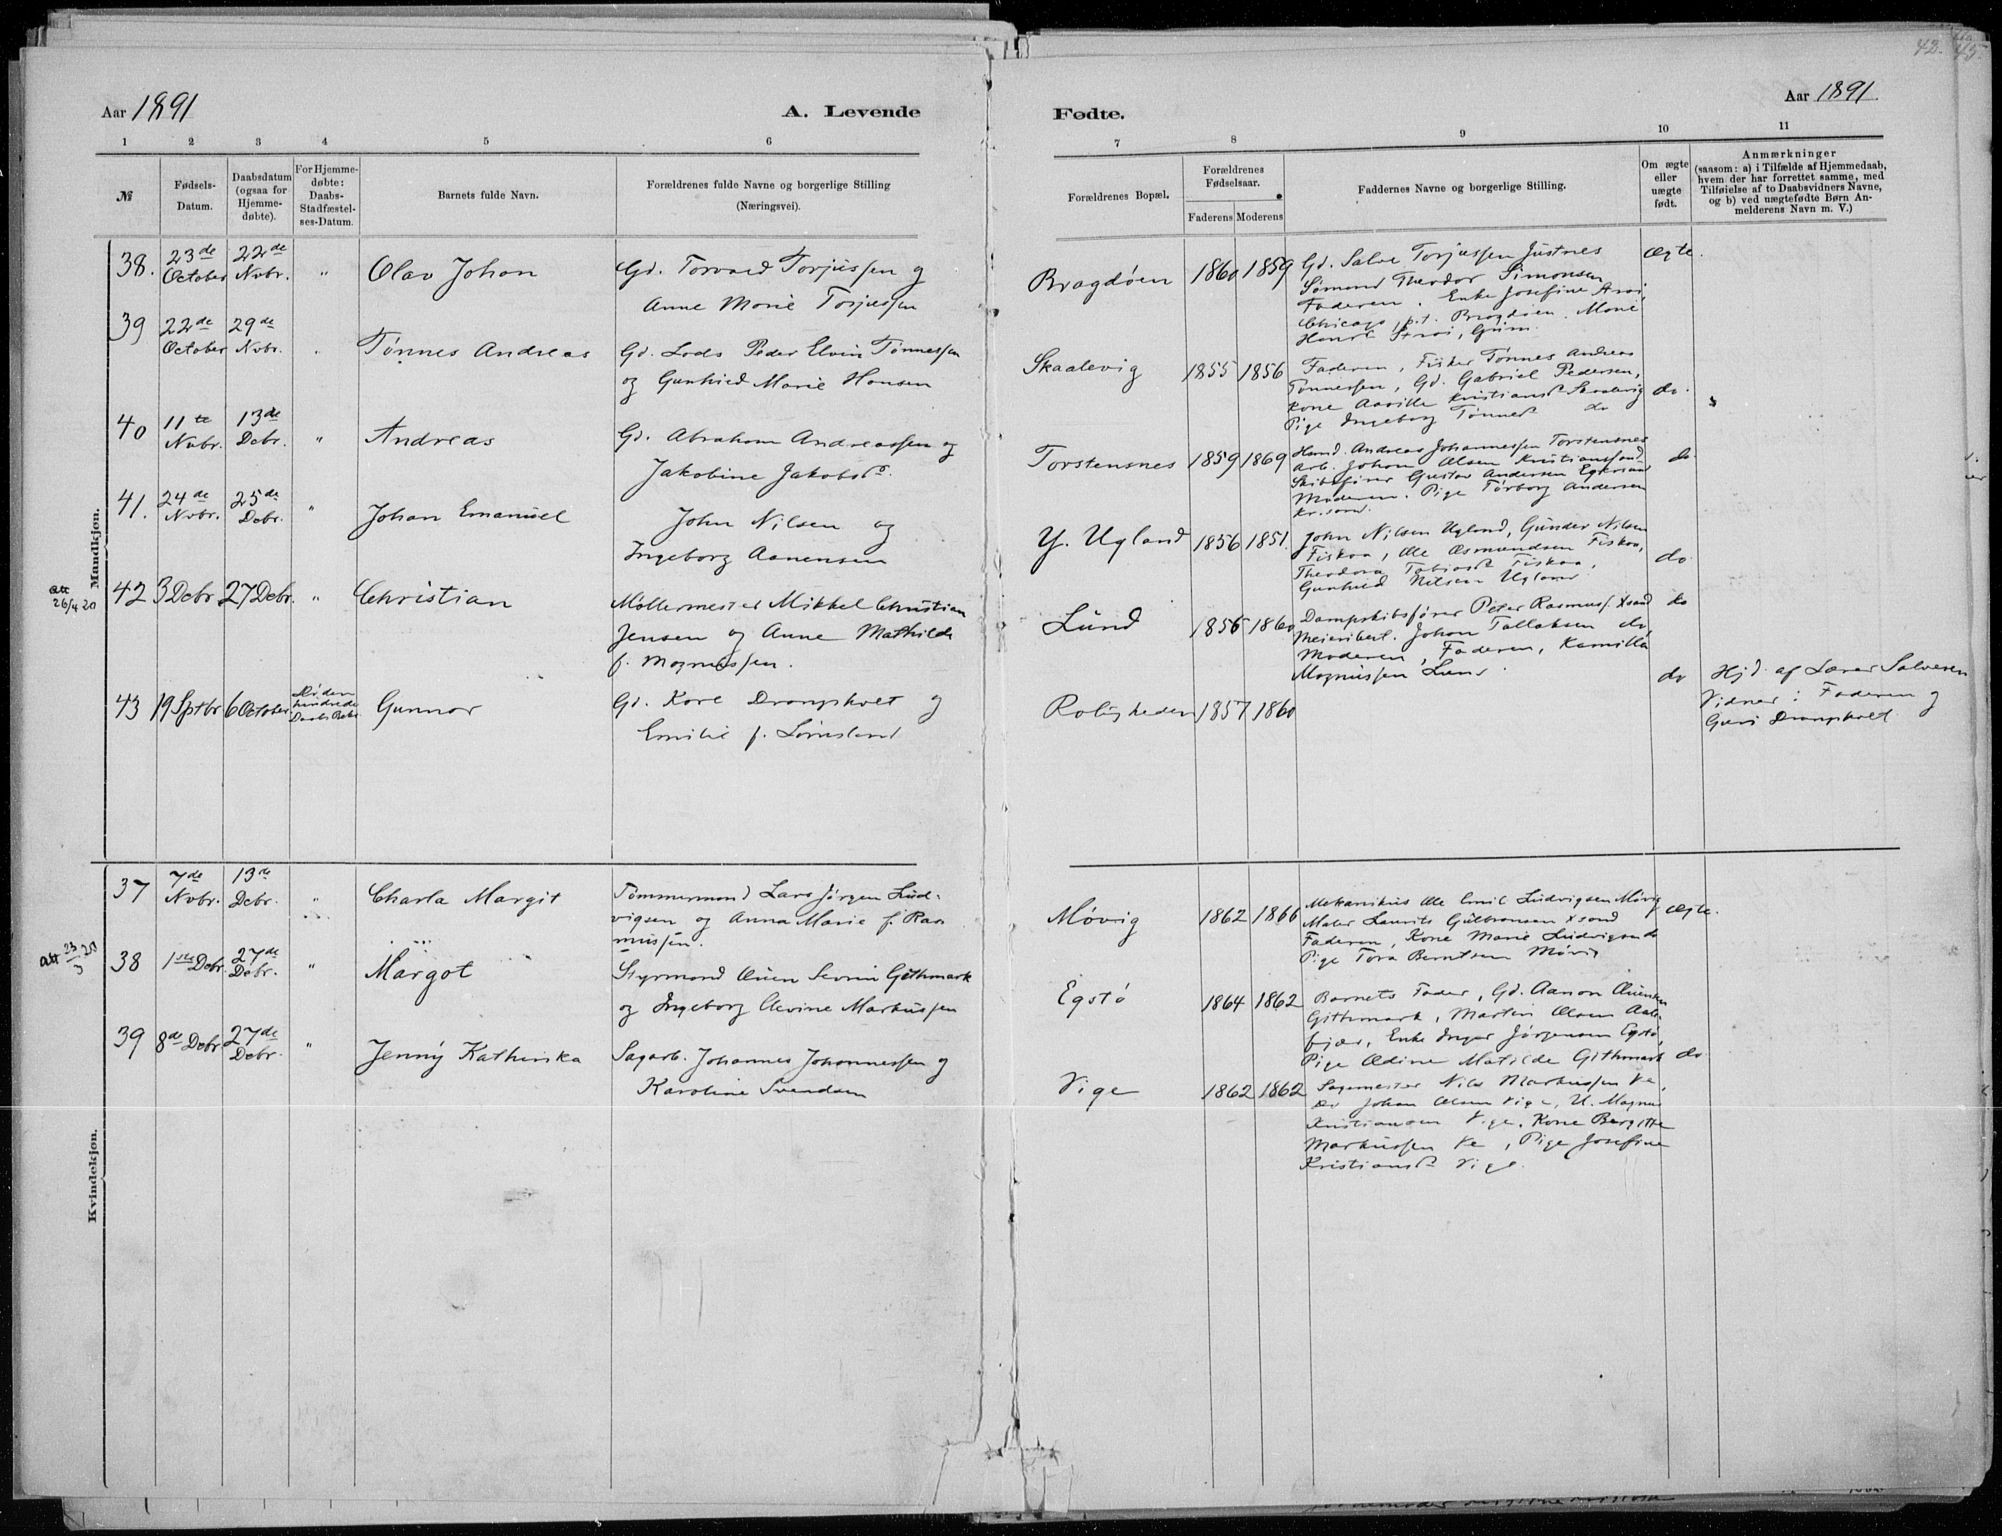 42. 45.
Aar 1891
A. Levende
1 2 3 4 5 6
№
Fødsels-
Datum.
Daabsdatum
(ogsaa for
Hjemme-
døbte).
For Hjemme-
døbte:
Daabs-
Stadfæstel-
ses-Datum.
Barnets fulde Navn.
Forældrenes fulde Navne og borgerlige Stilling
(Næringsvei).
Mandkjøn.
38. 23de October 22de Nvbr. " Olav Johan
Gd. Torvald Torjussen og
Anne Marie Torjussen
39 22de October 29de Nvbr. " Tønnes Andreas
Gd. Lods Peder Elvin Tønnessen
og Gunhild Marie Hansen
40 11te Nvbr. 13de Debr. " Andreas
Gd. Abraham Andreassen og
Jakobine Jakobsd.
41. 24de Nvbr. 25de Debr. " Johan Emanuel
John Nilsen og
Ingeborg Aanensen
att 26/4 20
42 3 Debr 27 Debr. " Christian
Møllermester Mikkel Christian
Jensen og Anne Mathilde
f. Magnussen.
43 19 Sptbr 6 October Gunnar
Gd. Kare Drangsholt og
Emilie f. Lømsland
Kvindekjøn.
37 7de Nvbr. 13de Debr. " Charla Margit
Tømmermand Lars Jørgen Lud-
vigsen og Anna Marie f. Ras
mussen.
att 23/3 20
38 1ste Debr. 27de Debr. " Margot
Styrmand Øuen Severin Githmark
og Ingeborg Elevine Markussen
39 8de Debr. 27de Debr. " Jenny Kathinka
Sagarb. Johannes Johannessen og
Karoline Svendsen
Fødte.
Aar 1891.
7 8 9 10 11
Forældrenes Bopæl.
Forældrenes
Fødselsaar.
Faderens Moderens
Faddernes Navne og borgerlige Stilling.
Om ægte
eller
uægte
født.
Anmærkninger
(saasom: a) i Tilfælde af Hjemmedaab,
hvem der har forrettet samme, med
Tilføielse af to Daabsvidners Navne,
og b) ved uægtefødte Børn An-
melderens Navn m. V.)
Bragdøen 1860 1859
Gd. Salve Torjussen Justnes
Sømand Theodor Simonsen
Faderen. Enke Josefine
Chicago, p.t. Bragdøen. Marie
Ægte.
Skaalevig 1855 1856
Faderen, Fisker Tønnes Andreas
Tønnessen, Gd. Gabriel Pedersen,
Kone Kristiansd Skaalevig
Pige Ingeborg Tønnesd do
do.
Torstensnes 1859 1869
Hand. Andreas Johannessen Torstensnes
Arb. Johan Olsen Kristianssand
Skibsfører Gustav Andersen Egersund
Moderen. Pige Torborg Andersen
Kr.sand.
do
Y. Ugland 1856 1851.
John Nilsen Ugland, Gunder Nilsen
Fiskaa, Ole Osmundsen Fiskaa,
Theodora Tobiasd Fiskaa,
Gunhild Nilsen Ugland
do
Lund 1856 1860
Dampskibsfører Peter Rasmuss. Xsand
Meieribest. Johan Tallaksen do,
Moderen, Faderen, Kamilla
Magnussen Lund.
do
Roligheden 1857 1860
do
Hjd. af Lærer Salvesen
Vidner: Faderen og
Guri Drangsholt
Møvig 1862 1866
Mekanikus Ole Emil Ludvigsen Møvig
Maler Laurits Gulbransen Xsand
Faderen, Kone Marie Ludvigsen do
Pige Tora Berntsen Møvig
Ægte.
Egstø 1864 1862
Barnets Fader, Gd. Aanon Øuensen
Githmark, Martin Olsen Aale-
fjær, Enke Inger Jørgensen Egstø,
Pige Ædine Matilde Githmark
do
Vige 1862 1862
Sagmester Nils Markussen Ve,
do Johan Olsen Vige, U. Magnus
Kristiansen Vige. Kone Bergitte
Markussen Ve, Pige Josefine
Kristiansd Vige.